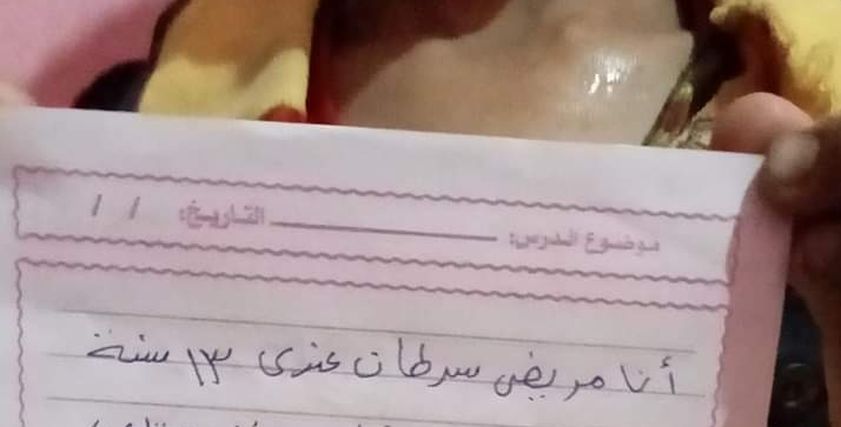 موضوع الدرس: التاريخ: / /
أنا مريض سرطان عندى ١٣ سنة